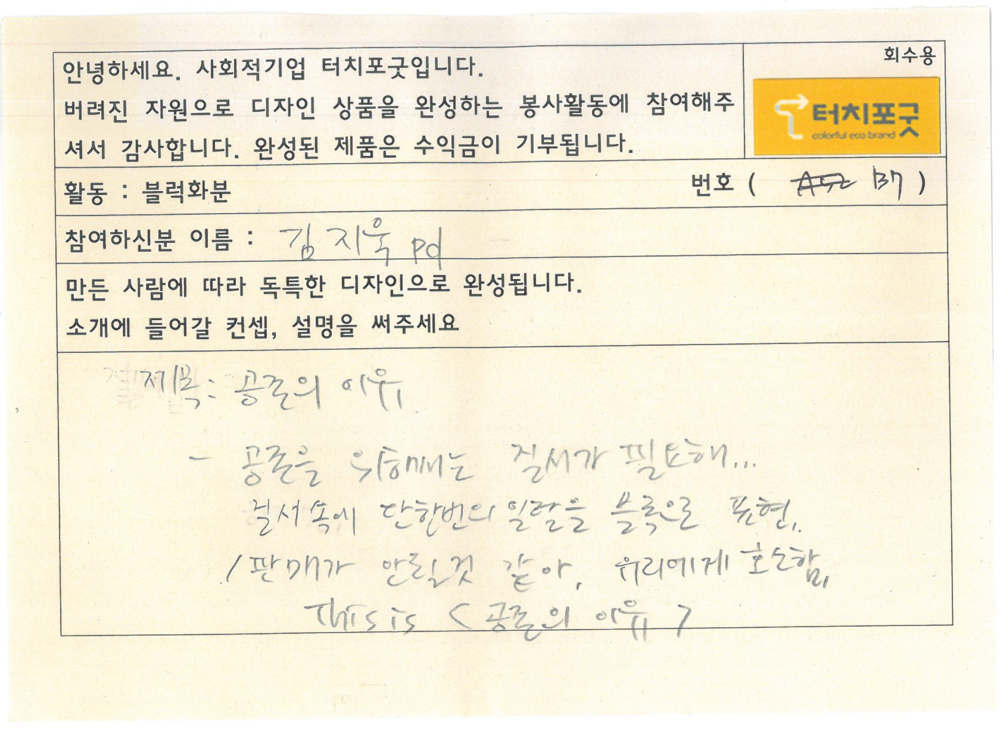 회수용
안녕하세요. 사회적기업 터치포굿입니다.
버려진 자원으로 디자인 상품을 완성하는 봉사활동에 참여해주
셔서 감사합니다. 완성된 제품은 수익금이 기부됩니다.
터치포굿
colorful eco brand
활동 : 블럭화분
번호 ( B7 )
참여하신분 이름 : 김지욱 pd
만든 사람에 따라 독특한 디자인으로 완성됩니다.
소개에 들어갈 컨셉, 설명을 써주세요
제목: 공존의 이유
- 공존을 위해서는 질서가 필요해...
질서속에 단한번의 일탈을 블록으로 표현.
/판매가 안될것 같아, 유리에게 호소함,
This is < 공존의 이유 >